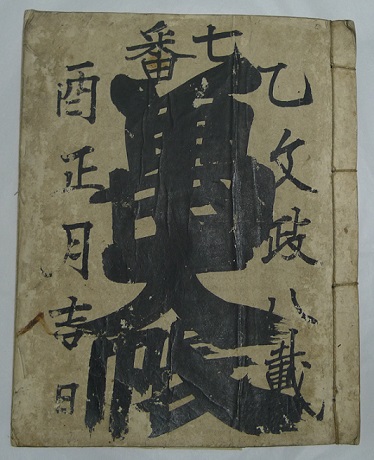 七番
乙文政八載
帳
酉正月吉日